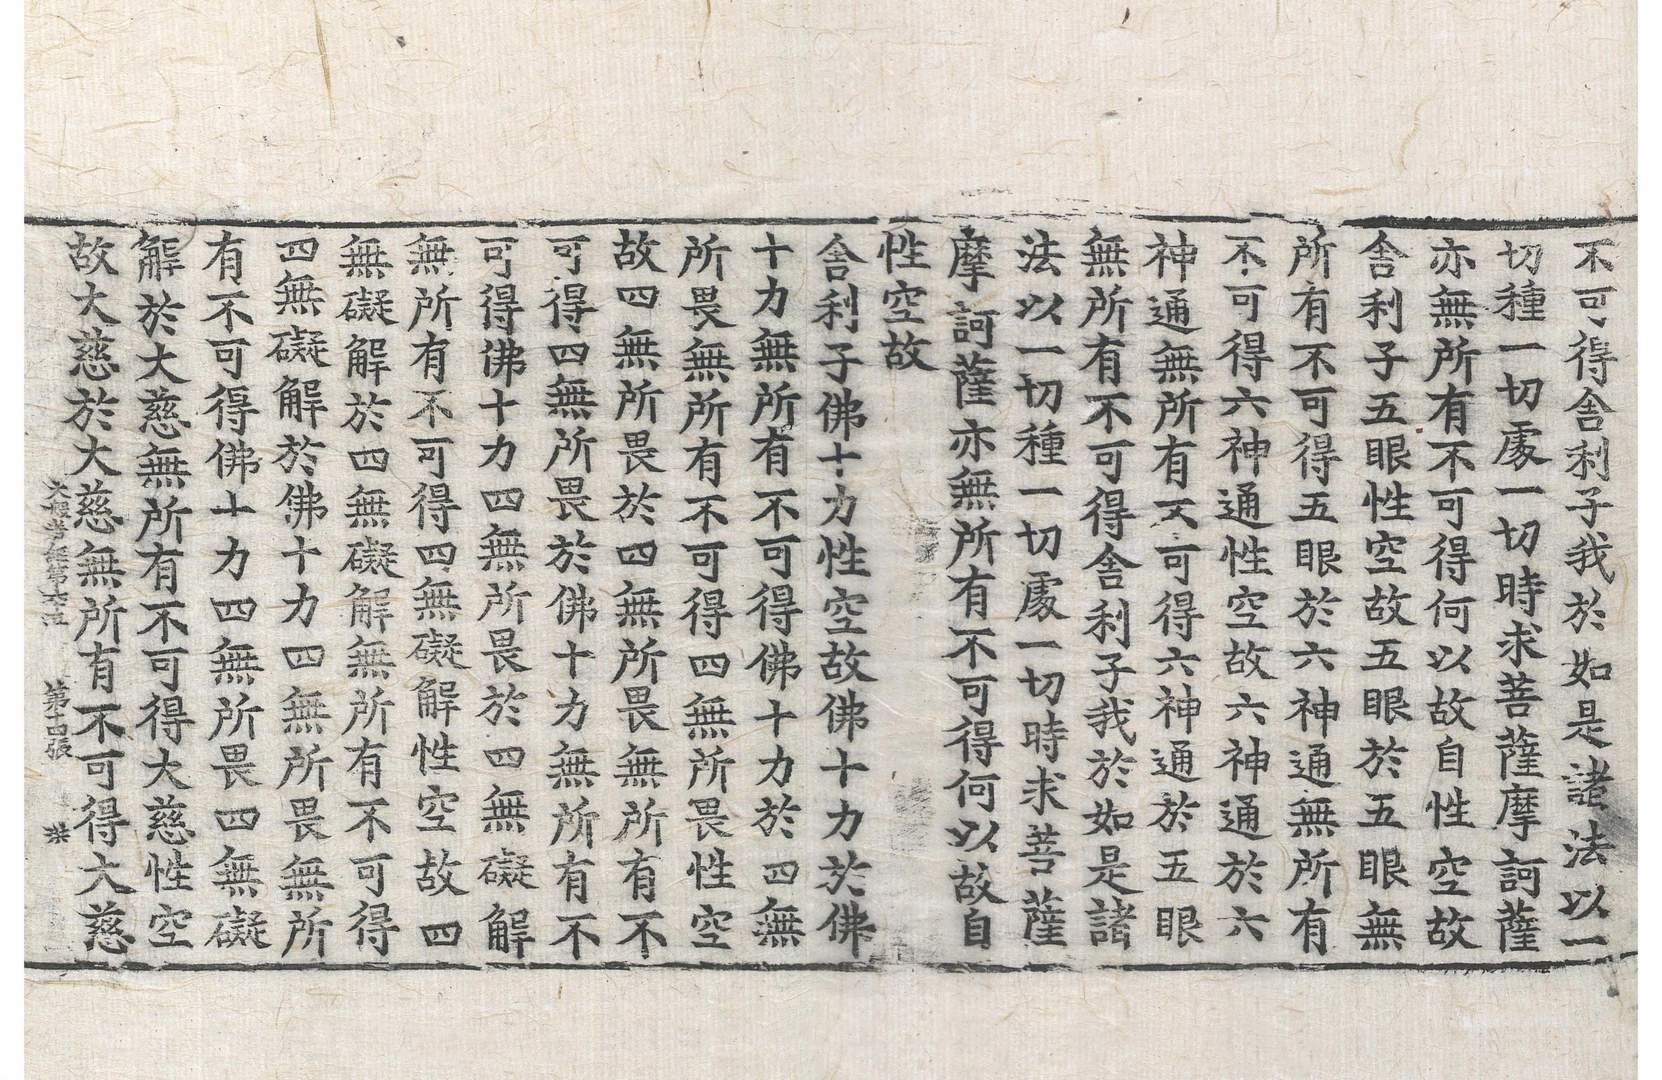 不可得舍利子我於如是諸法以一
切種一切處一切時求菩薩摩訶薩
亦無所有不可得何以故自性空故
舍利子五眼性空故五眼於五眼無
所有不可得五眼於六神通無所有
不可得六神通性空故六神通於六
神通無所有不可得六神通於五眼
無所有不可得舍利子我於如是諸
法以一切種一切處一切時求菩薩
摩訶薩亦無所有不可得何以故自
性空故
舍利子佛十力性空故佛十力於佛
十力無所有不可得佛十力於四無
所畏無所有不可得四無所畏性空
故四無所畏於四無所畏無所有不
可得四無所畏於佛十力無所有不
可得佛十力四無所畏於四無礙解
無所有不可得四無礙解性空故四
無礙解於四無礙解無所有不可得
四無礙解於佛十力四無所畏無所
有不可得佛十力四無所畏四無礙
解於大慈無所有不可得大慈性空
故大慈於大慈無所有不可得大慈
大般若經第六十五 第十四張